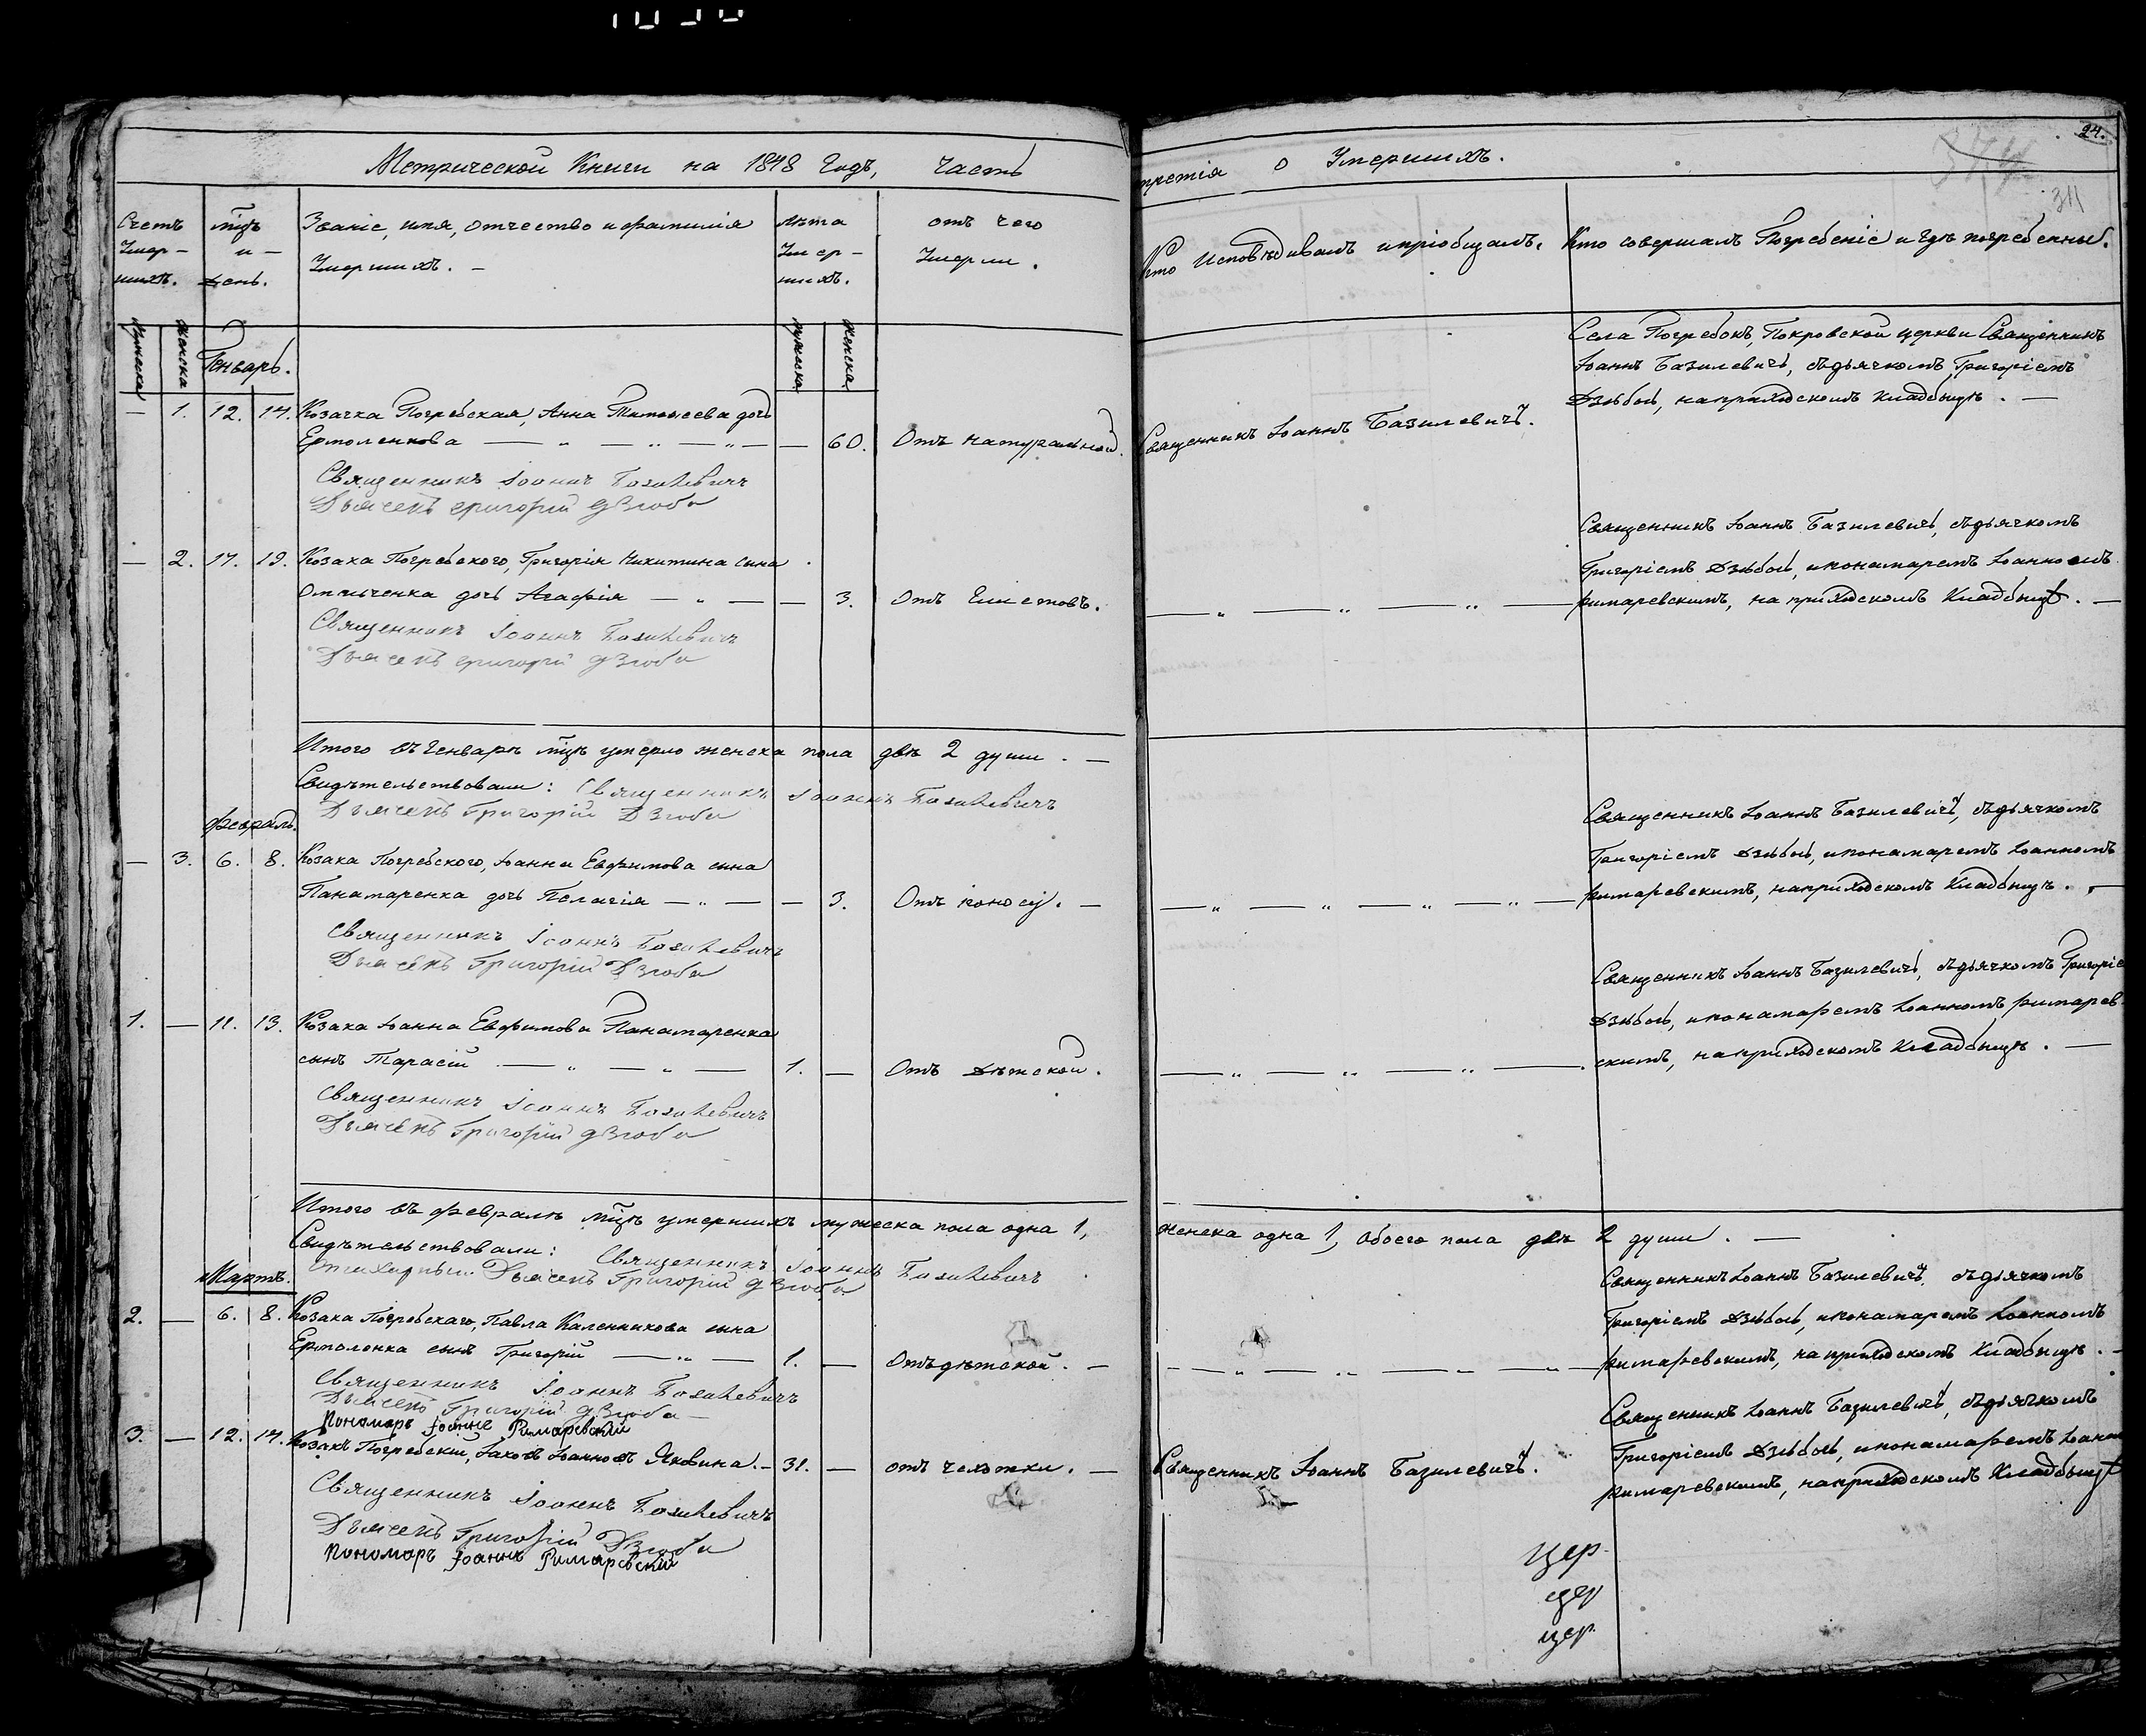 Метрической Книги на 1848 Годъ, Часть
третія о Умершихъ.
24.
311
Счетъ Умер-шихъ.
мцъ и день.
Званіе, имя, отчество и фамилія Умершихъ. -
Лѣта Умер-шихъ.
отъ чего Умерли.
Кто Исповѣдивалъ и пріобщалъ.
Кто совершалъ Погребеніе и гдѣ погребенны.
Мужеска
Женска
Мужеска
Женска
Генварь.
Села Погребокъ, Покровской церкви Священникъ
Іоаннъ Базилевичъ, съ дьячкомъ Григоріемъ
Дзюбою, на приходскомъ кладбищѣ. —
— 1. 12. 14. Козачка Погребская, Анна Тимофеева дочь
Ермоленкова — „ — „ — „ — — 60. Отъ натуральной. Священникъ Іоаннъ Базилевичъ.
Священникъ Іоаннъ Базилевичъ
Дьячекъ Григорій Дзюба
Священникъ Іоаннъ Базилевичъ, съ дьячкомъ
— 2. 17. 19. Козака Погребского, Григорія Никитина сына
Григоріемъ Дзюбою, и понамаремъ Іоанномъ
дочь Агафія — „ — — 3. Отъ Глистовъ. — „ — „ — „ —
Римаревскимъ, на приходскомъ Кладбищѣ. —
Священникъ Іоаннъ Базилевичъ
Дьячекъ Григорій Дзюба
Итого въ Генварѣ мцѣ умерло женска пола двѣ 2 души. —
Свидѣтельствовали: Священникъ Іоаннъ Базилевичъ
Дьячекъ Григорій Дзюба
Февраль.
Священникъ Іоаннъ Базилевичъ, съ дьячкомъ
— 3. 6. 8. Козака Погребского, Іоанна Евфимова сына
Григоріемъ Дзюбою, и понамаремъ Іоанномъ
Панамаренка дочь Пелагія — „ — — 3. Отъ поносу. — — „ — „ — „ — „ —
Римаревскимъ, на приходскомъ Кладбищѣ. —
Священникъ Іоаннъ Базилевичъ
Дьячекъ Григорій Дзюба
Священникъ Іоаннъ Базилевичъ, съ дьячкомъ Григоріе
1. — 11. 13. Козака Іоанна Евфимова Панамаренка
Дзюбою, и понамаремъ Іоанномъ Римарев-
сынъ Тарасій — „ — „ — 1. — Отъ Дѣтской. — „ — „ — „ —
скимъ, на приходскомъ Кладбищѣ. —
Священникъ Іоаннъ Базилевичъ
Дьячекъ Григорій Дзюба
Итого въ Февралѣ мцѣ умершихъ мужеска пола одна 1, женска одна 1, обоего пола двѣ 2 души. —
Свидѣтельствовали: Священникъ Іоаннъ Базилевичъ
Стихарный Дьячекъ Григорій Дзюба
Мартъ.
Священникъ Іоаннъ Базилевичъ, съ дьячкомъ
2. — 6. 8. Козака Погребскаго, Павла Каленникова сына
Григоріемъ Дзюбою, и понамаремъ Іоанномъ
Ермоленка сынъ Григорій — „ — 1. — Отъ дѣтской. — — „ — „ — „ —
Римаревскимъ, на приходскомъ Кладбищѣ. —
Священникъ Іоаннъ Базилевичъ
Дьячекъ Григорій Дзюба
Пономарь Іоаннъ Римаревскій
Священникъ Іоаннъ Базилевичъ, съ дьячкомъ
3. — 12. 14. Козакъ Погребскій, Іаковъ Іоанновъ Яковина. — 31. — отъ чехотки. — Священникъ Іоаннъ Базилевичъ.
Григоріемъ Дзюбою, и понамаремъ Іоанн
Римаревскимъ, на приходскомъ Кладбищѣ
Священникъ Іоаннъ Базилевичъ
Дьячекъ Григорій Дзюба
Пономарь Іоаннъ Римаревскій
цер
цер
цер